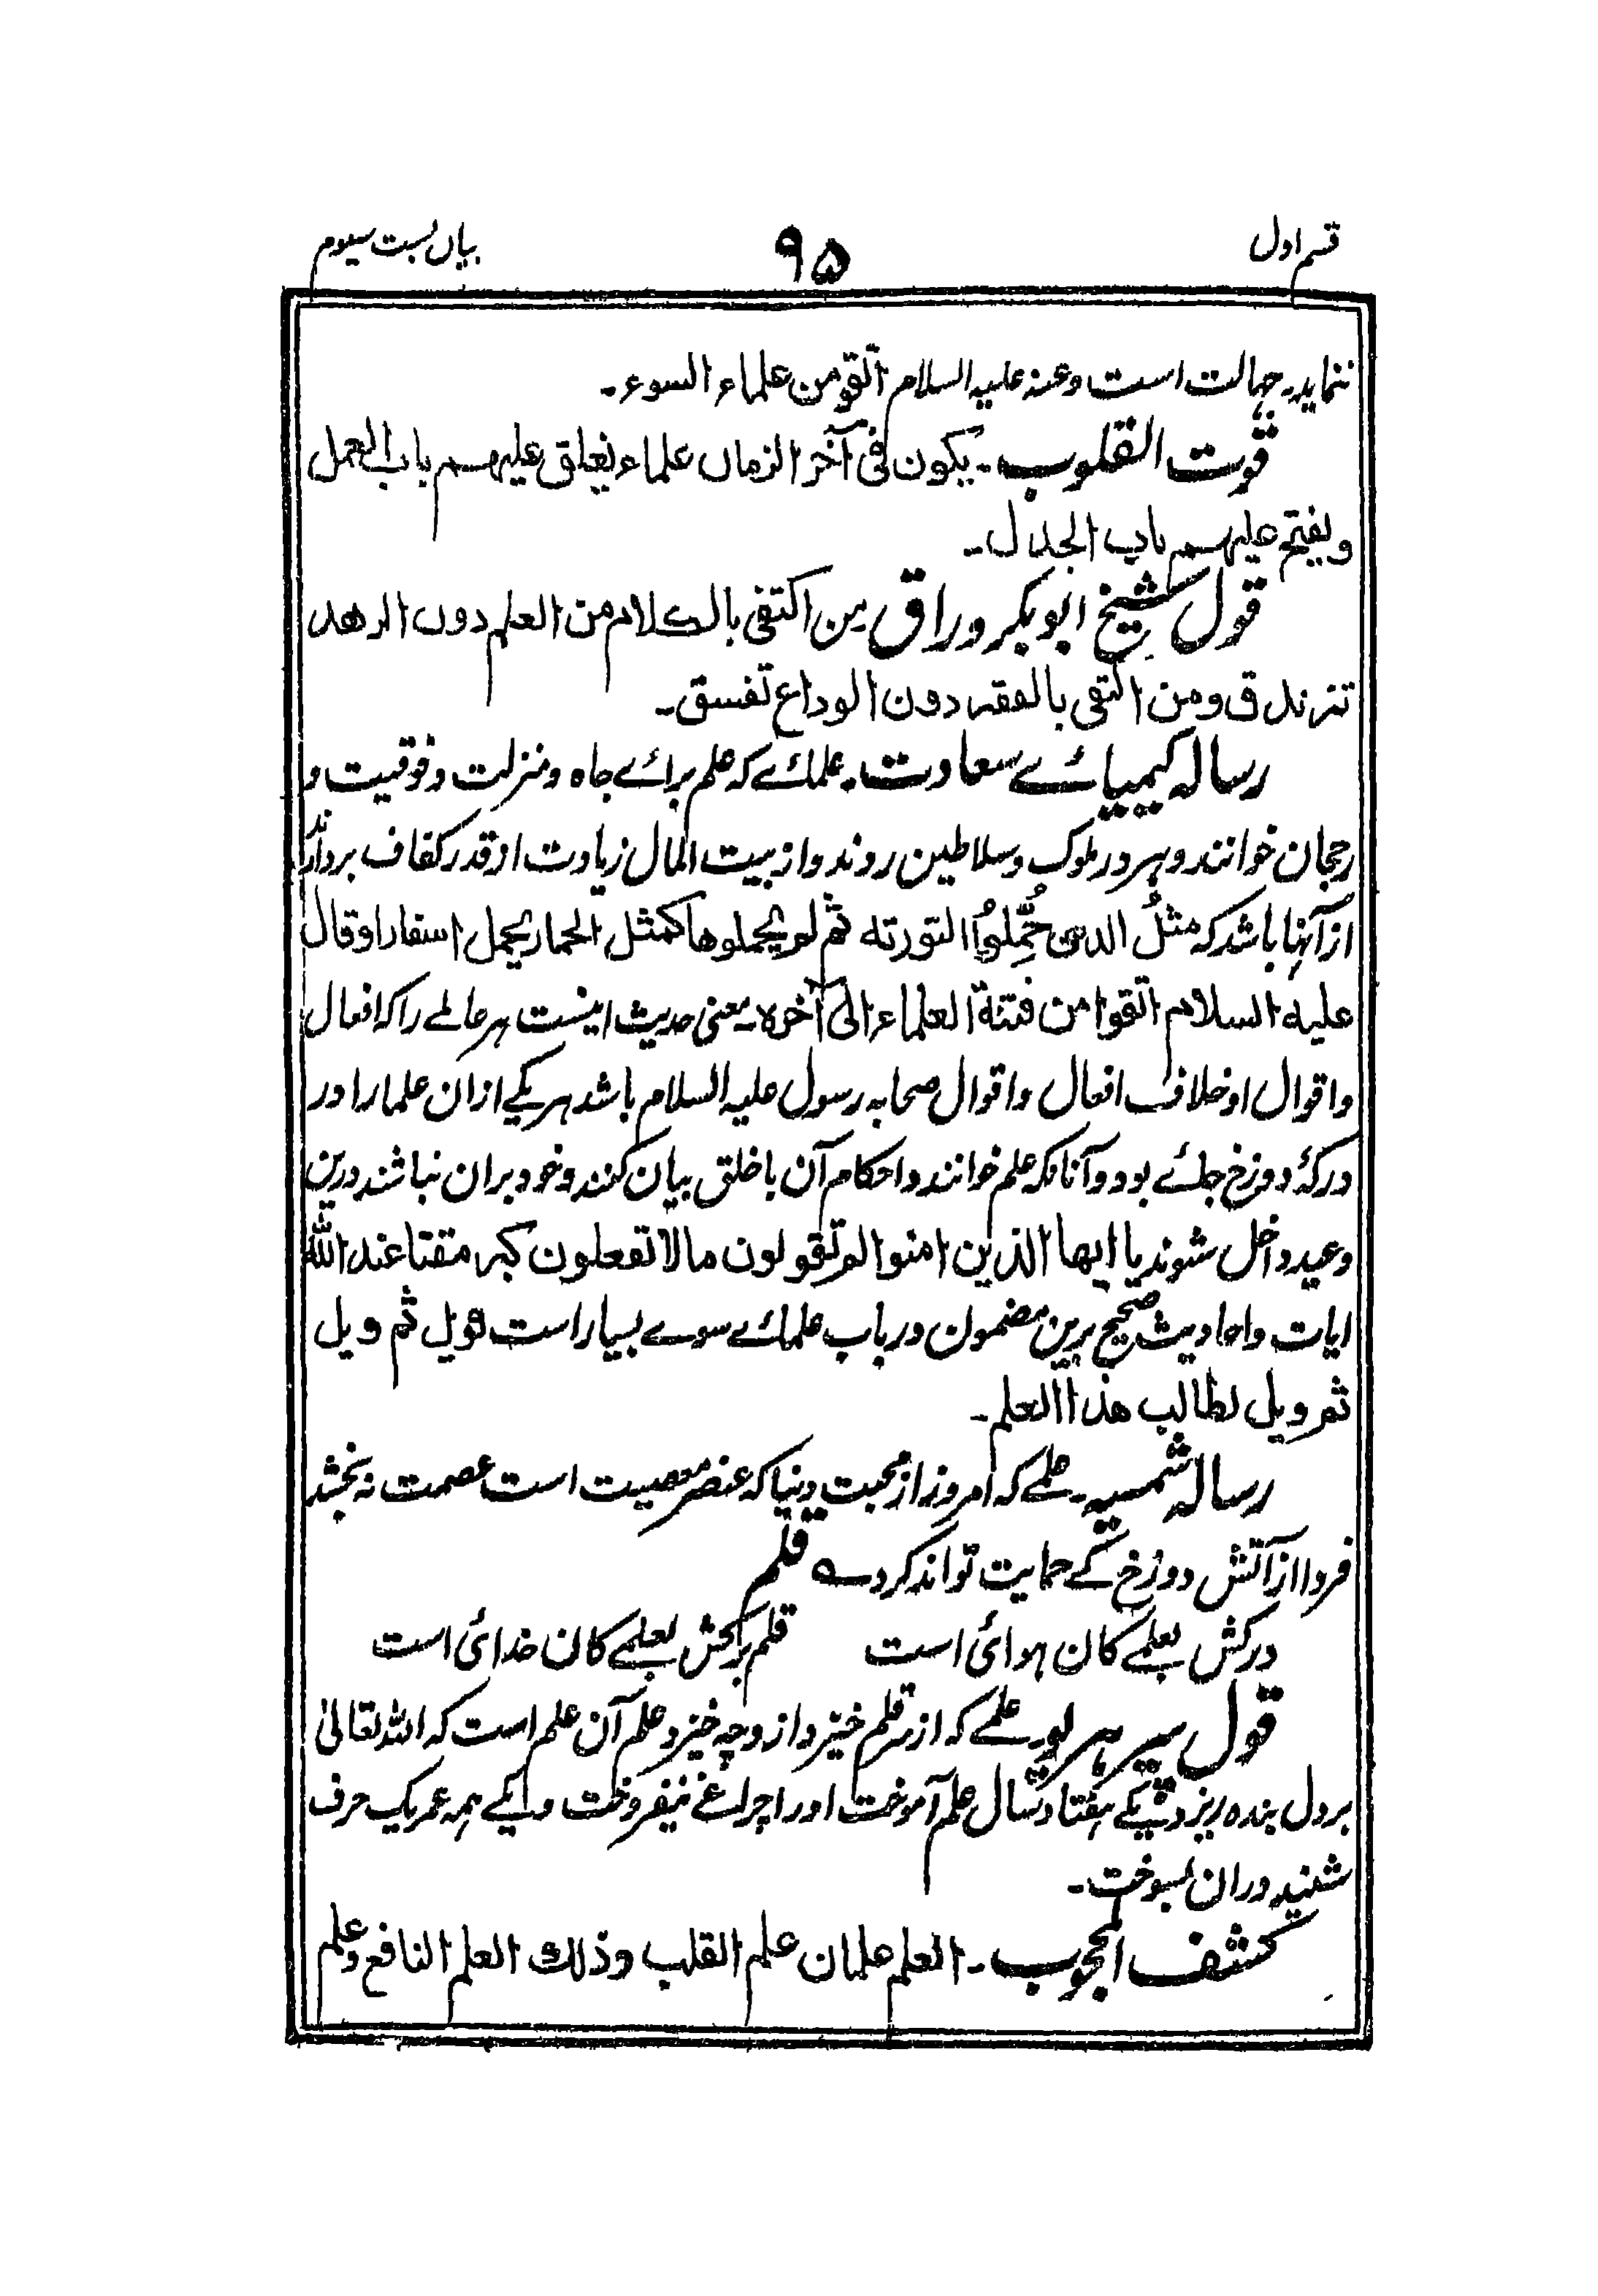 قسم اول
۹۵
بیاں بست سیوم
ننماید جہالت است وعنہ علیہ السلام اتقو من علماء السوء۔
قوت القلوب۔ یکون فی آخر الزمان علماء یغلق علیہم باب العمل
ویفتح علیہم باب الجدال۔
قول شیخ ابوبکر وراق من اکتفی بالکلام من العلم دون الزهد
تزندق ومن اکتفی بالفقہ دون الوداع تفسق۔
رسالہ کیمیائے سعادت۔ علمائے کہ علم برائے جاہ ومنزلت وفوقیت و
رجحان خوانند وبہر در ملوک وسلاطین روند واز بیت المال زیادت از قدر کفاف بردارند
از آنہا باشد کہ مثلُ الذین حُمِّلوُا التورتہ ثم لم یحملوها کمثل الحمار یحمل اسفارا وقال
علیہ السلام اتقوا من فتنة العلماء الی آخرہ۔ معنی حدیث اینست ہر عالمے را کہ افعال
واقوال او خلاف افعال واقوال صحابہ رسول علیہ السلام باشد ہریکے ازان علما را در
درکۂ دوزخ جائے بود وآنانکہ علم خوانند واحکام آن با خلق بیان کنند وخود بران نباشند درین
وعید داخل شوند یا ایها الذین امنوا لم تقولون ما لا تفعلون کبر مقتا عند اللہ
ایات واحادیث صحیح برین مضمون در باب علمائے سوے بسیار است فویل ثم ویل
ثم ویل لطالب هذا العلم۔
رسالہ شمسیہ۔ علمے کہ امروز از محبت دنیا کہ عنصر معصیت است عصمت نہ بخشد
فردا از آتش دوزخ کے حمایت تواند کرد ؎ قلم
درکش بعلمے کان ہوائی است قلم برکش بعلمے کان خدائی است
قول پیر ہریو۔ علمے کہ از قلم خیزد از وچہ خیزد علم آن علم است کہ اللہ تعالیٰ
بر دل بندہ ریزد یکے ہفتاد سال علم آموخت اورا چراغے نیفروخت ویکے ہمہ عمر یک حرف
شنید دران بسوخت۔
کشف المحجوب۔ العلم علمان علم القلب وذلك العلم النافع وعلم